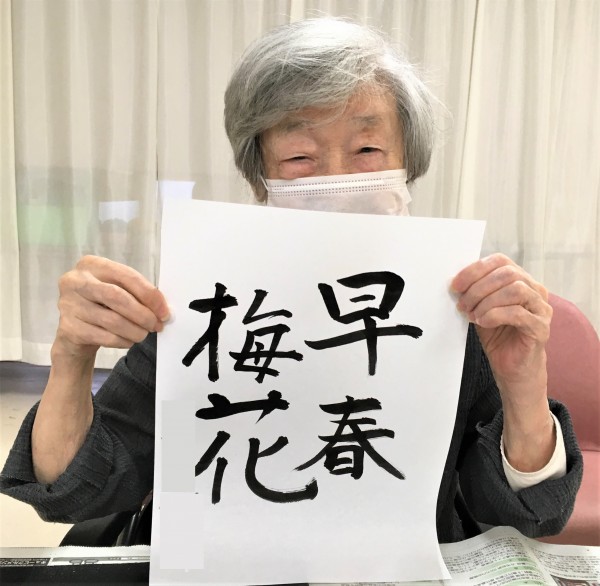 早春
梅花